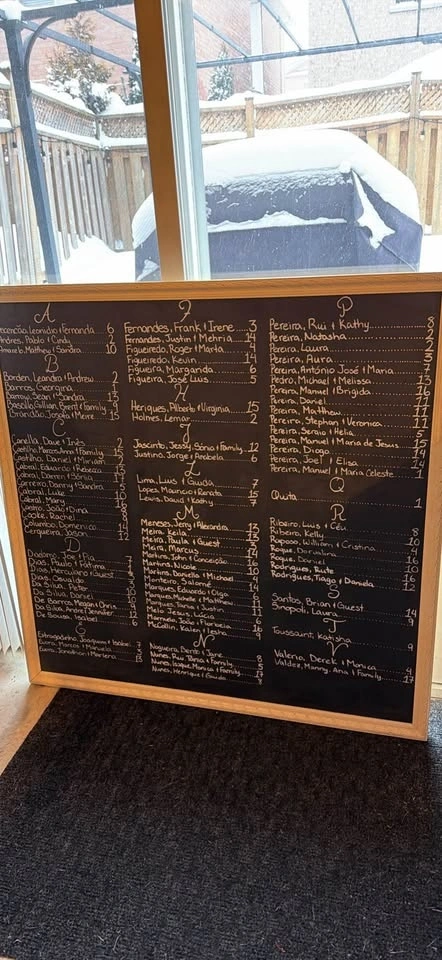 A
Leonidio & Fernanda 6
Andres, Pablo & Cindy 2
Matthew & Sandra 10
B
Borden, Leandra & Andrew 2
Barros, Georgina
Barroy, Sean & Sandra 13
Gillian, Brent & Family 5
Brandão, Jorge & Meire 15
C
Canella, Dave & Inês 2
Castilho, Marcos, Anna & Family 15
Castilho, Daniel & Miriam
Cabral, Eduardo &
Cabral, Darren & Sónia
Carreiro, Danny & Sandra
Cabral, Luiz
Cabral, Mary
Castro, João & Dina
Cooke, Rachel
Columbo, Domenico 14
Cerqueira, Jason 12
D
Dadamo, Joe & Pia
Dias, Paulo & Fátima
Dias, Herculano & Guest
Dias, Osvaldo
Da Silva, Peter
Da Silva, Daniel 10
De Barros, Megan & Chris 9
Da Silva, André & Jennifer 12
De Sousa, Isabel 6
E
Joaquim & Isabel 7
Eurra, Marcos & Manuela
Eurra, Jonathan & Marlena 13
F
Fernandes, Frank & Irene 3
Fernandes, Justin & Mehria 14
Figueiredo, Roger & Marta 4
Figueiredo, Kevin 14
Figueira, Margarida 6
Figueira, José Luis 5
H
Heriques, Alberto & Virginia 15
Holnes, Lemar 2
J
Jascinto, Jessy, Sónia & Family 12
Justino, Jorge & Anabela 6
L
Lima, Luis & Guida 7
Lopes, Mauricio & Renata 15
Louis, David & Kathy 7
M
Meneses, Jerry & Alexandra 13
Meira, Keila 13
Meira, Paulla & Guest
Meira, Marcus 14
Martins, John & Conceição 16
Martins, Nicole 16
Martins, Daniella & Michael
Monterio, Salomé
Marques, Eduardo & Olga 14
Marques, Michelle & Matthew 11
Marques, Tania & Justin 11
Melo, Jesus, Lúcia
João & Floripeia 6
McCollin, Kalen & Iesha 16
9
N
Nogueira, Dento & Jane 8
Nunes, Rui, Tânia & Family 5
Nunes, Isaque, Monica & Family 17
Nunes, Henrique & Guida 8
P
Pereira, Rui & Kathy 8
Pereira, Natasha 2
Pereira, Laura 2
Pereira, Aura 3
Pereira, António José & Maria 7
Pedro, Michael & Melissa 13
Pereira, Manuel & Brigida 16
Pereira, Daniel
Pereira, Matthew 11
Pereira, Stephan & Veronica 11
Pereira, Sergio & Hélia 5
Pereira, Manuel & Maria de Jesus 15
Pereira, Diogo 14
Pereira, Joel & Elisa 14
Pereira, Manuel & Maria Celeste 1
Q
Quita 1
R
Ribeiro, Luis & Céu 8
Ribeiro, Kelly 8
Raposo, William & Cristina 4
Roque, Dorvalina 4
Roque, Daniel 16
Rodrigues, Rute 10
Rodrigues, Tiago & Daniela 16
12
S
Santos, Brian & Guest 14
Sinopoli, Laura 9
T
Toussaint, Katisha 9
V
Valerio, Derek & Monica 4
Valdez, Manny, Ana & Family 17